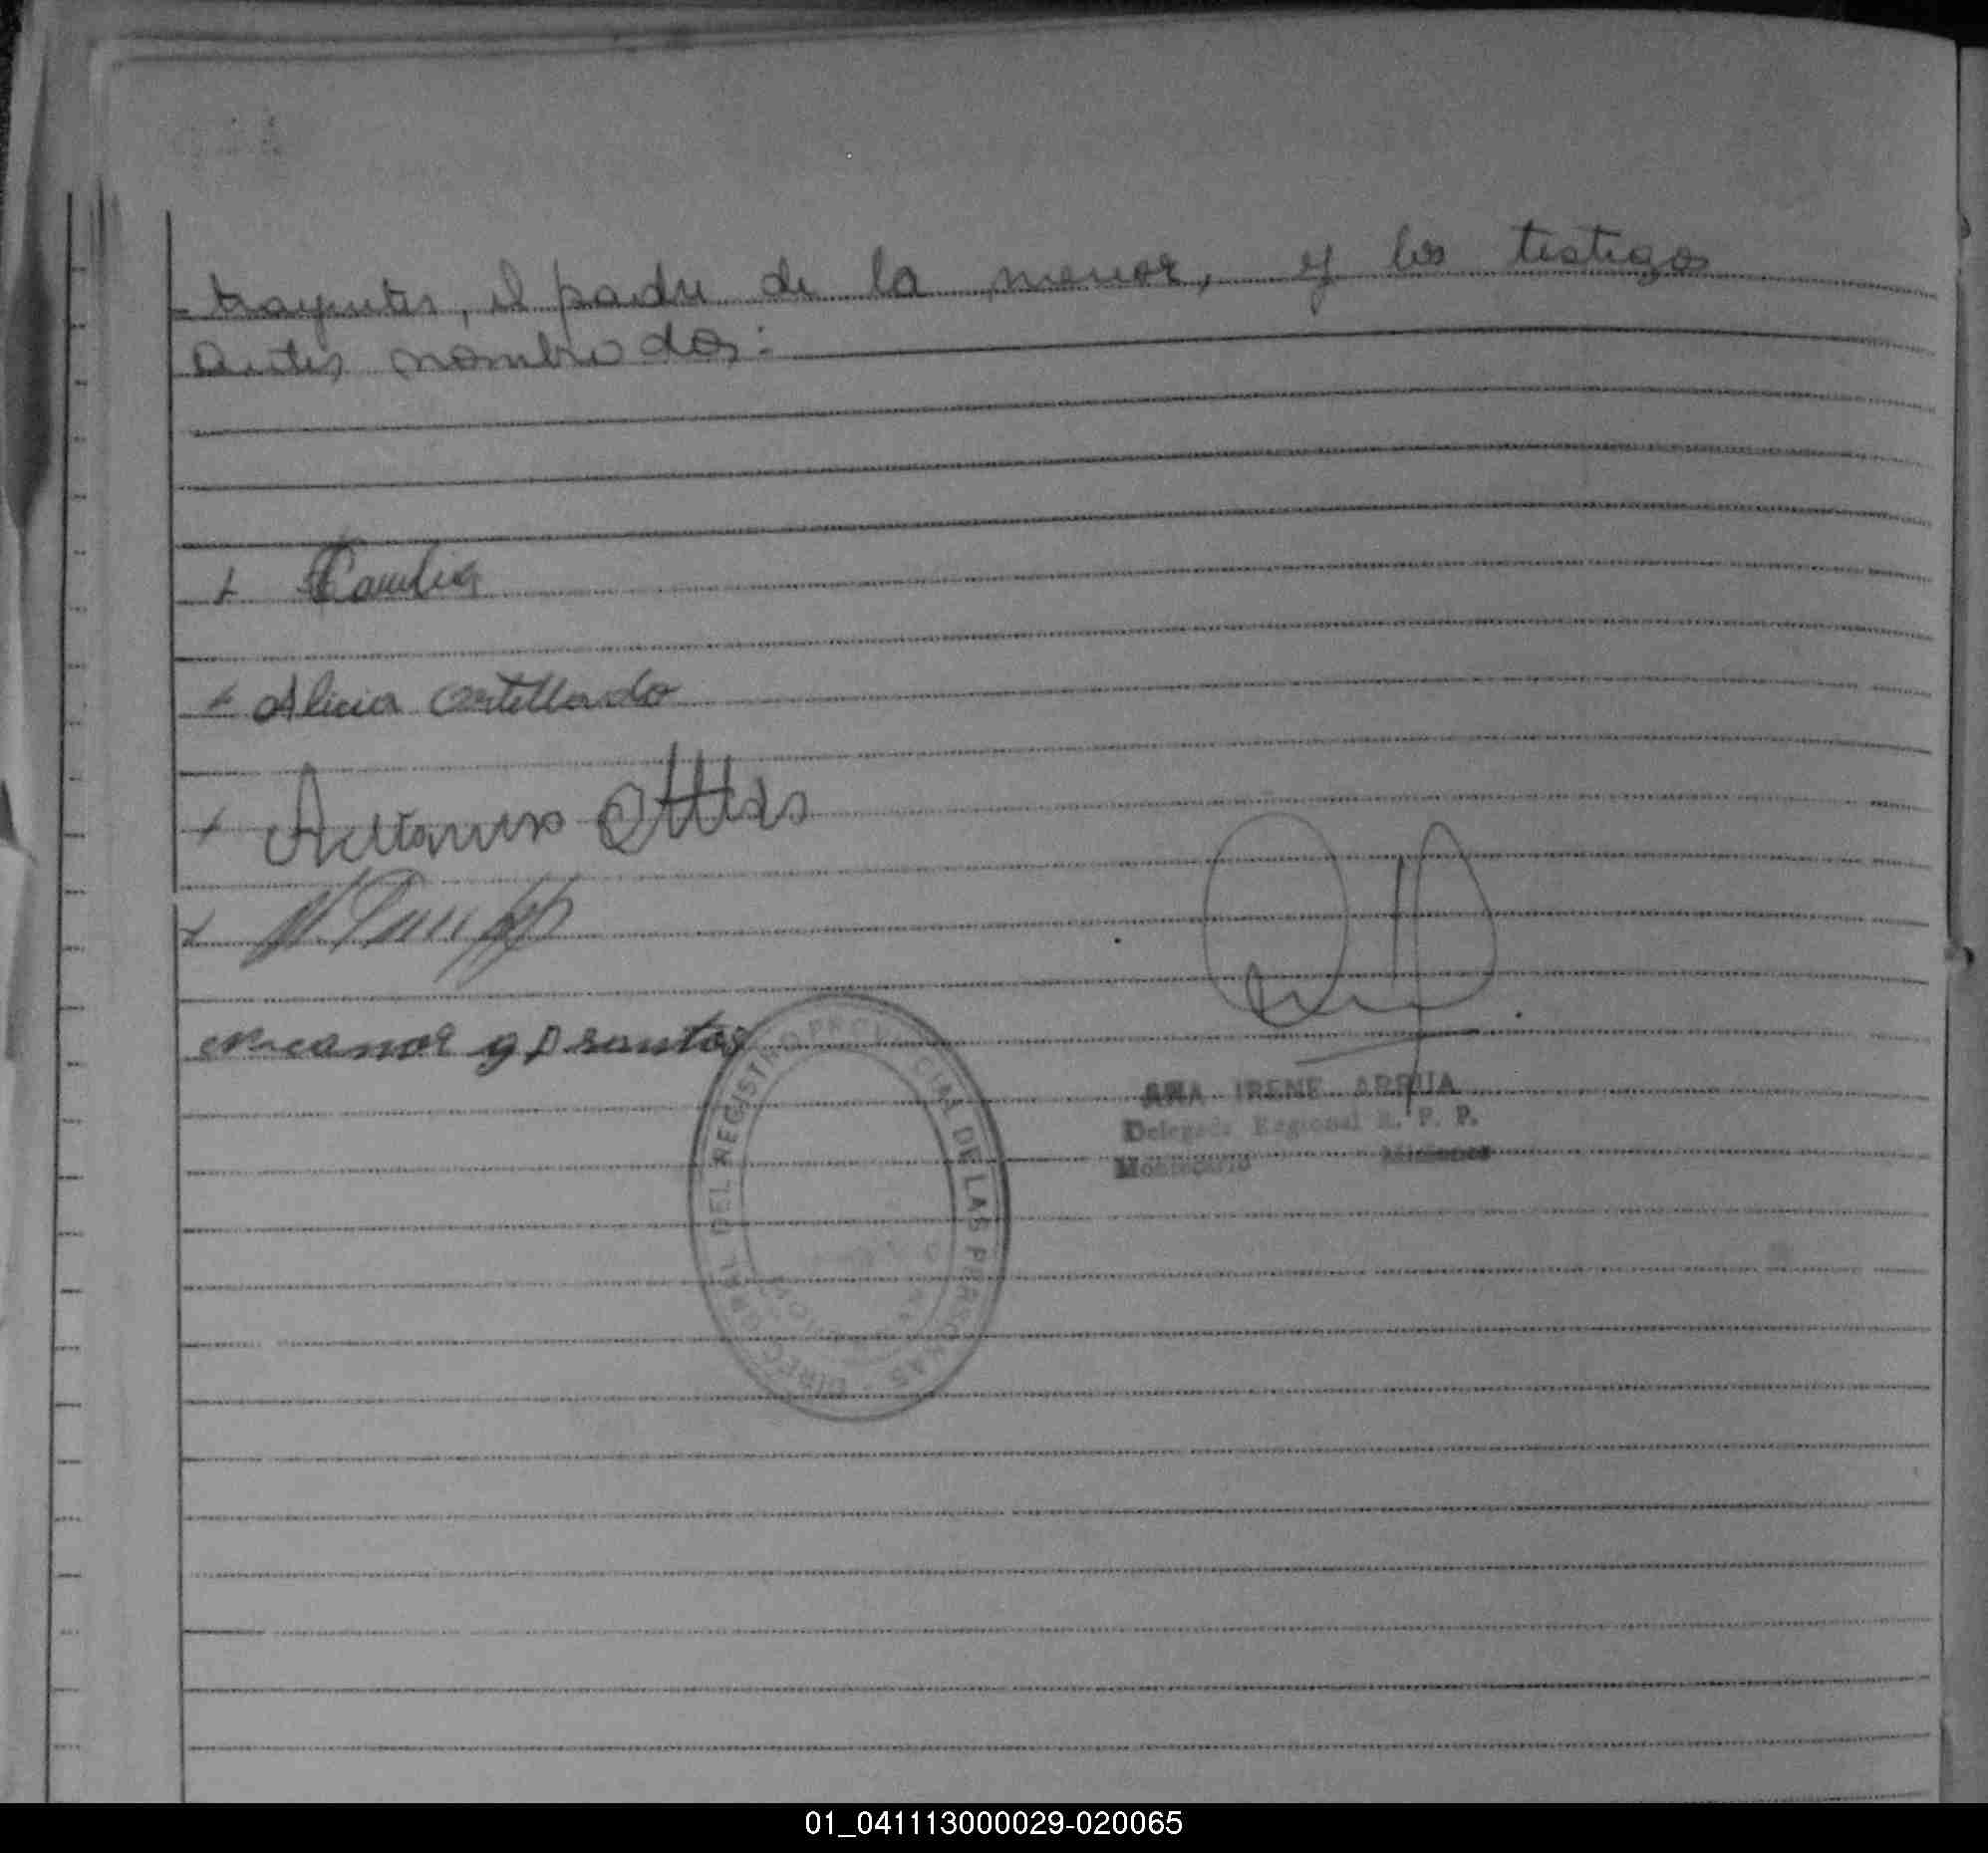 - trayentes, el padre de la menor, y los testigos
antes nombrados:
Alicia Castellardo
Antonius
Nicanor g D santos
DIREC. GRAL. DEL REGISTRO PROVINCIAL DE LAS PERSONAS
ANA IRENE ARRUA
Delegada Regional R. P. P.
Montecarlo Misiones
01_041113000029-020065